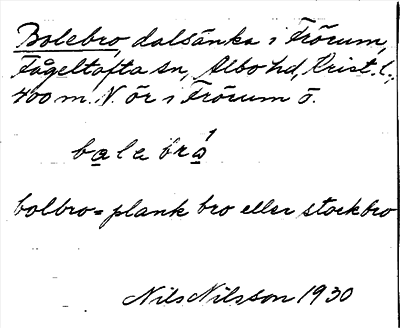 Bolebro, dalsänka i Frörum,
Fågeltofta sn, Albo hd, Krist. l.,
400 m. N. ör i Frörum ö.
bale bra1
bolbro = plank bro eller stockbro
Nils Nilsson 1930